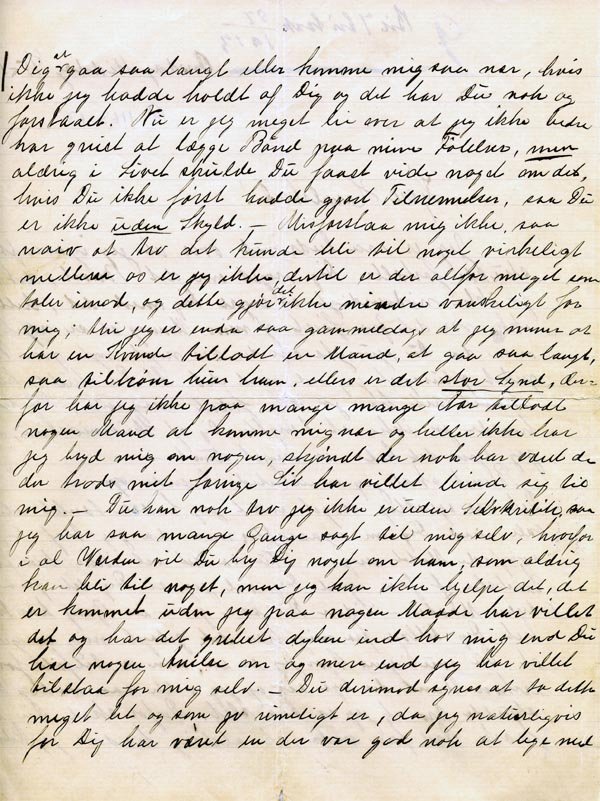 Dig at gaa saa langt eller komme mig saa nær, hvis
ikke jeg hadde holdt af Dig og det har Du nok og
forstaaet. Nu er jeg meget lei over at jeg ikke bedre
har greiet at lægge Baand paa mine Følelser, men
aldrig i Livet skulde Du faaet vide noget om det,
hvis Du ikke først hadde gjort Tilnermelser, saa Du
er ikke uden Skyld. – Misforstaa mig ikke, saa
naiv at tro det kunde bli til noget virkeligt
mellem os er jeg ikke, dertil er der altfor meget som
taler imod, og dette gjør det ikke mindre vanskeligt for
mig; thi jeg er enda saa gammeldags at jeg mener at
har en Kvinde tilladt en Mand, at gaa saa langt,
saa tilhører hun ham, ellers er det stor Synd, der-
for har jeg ikke paa mange mange Aar tilladt
nogen Mand at komme mig nær og heller ikke har
jeg bryd mig om nogen, skjøndt der nok har været de
der trods mit forrige Liv har villet binde sig til
mig. – Du kan nok tro jeg ikke er uden Selvkritik, saa
jeg har saa mange Gange sagt til mig selv, hvofor
i al Verden vil Du bry Dig noget om ham, som aldrig
kan bli til noget, men jeg kan ikke hjelpe det, det
er kommet uden jeg paa nogen Maade har villet
det og har det grebet dybere ind hos mig end Du
har nogen Anelse om og mere end jeg har villet
tilstaa for mig selv. – Du derimod synes at ta dette
meget let og som jo rimeligt er, da jeg naturligvis
for Dig har været en der var god nok at lege med